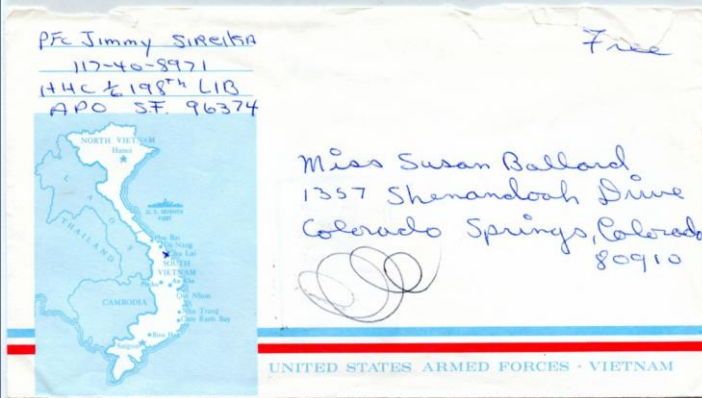 PFC Jimmy SIREIKA
117-40-8971
HHC 198th LIB
APO S.F. 96374
Free
Miss Susan Ballard
1357 Shenandoah Drive
Colorado Springs, Colorado
80910
NORTH VIETNAM
Hanoi
LAOS
THAILAND
U.S. SEVENTH
FLEET
Phu Bai
Da Nang
Chu Lai
SOUTH
VIETNAM
Pleiku
An Khe
Qui Nhon
CAMBODIA
Nha Trang
Cam Ranh Bay
Bien Hoa
Saigon
UNITED STATES ARMED FORCES · VIETNAM